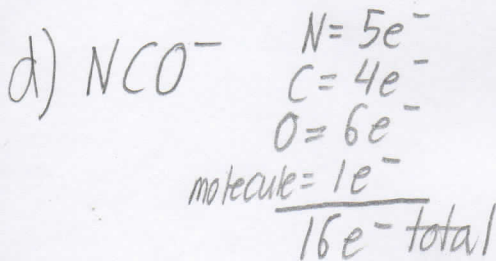 d) NCO⁻
N = 5e⁻
C = 4e⁻
O = 6e⁻
molecule = 1e⁻
16e⁻ total